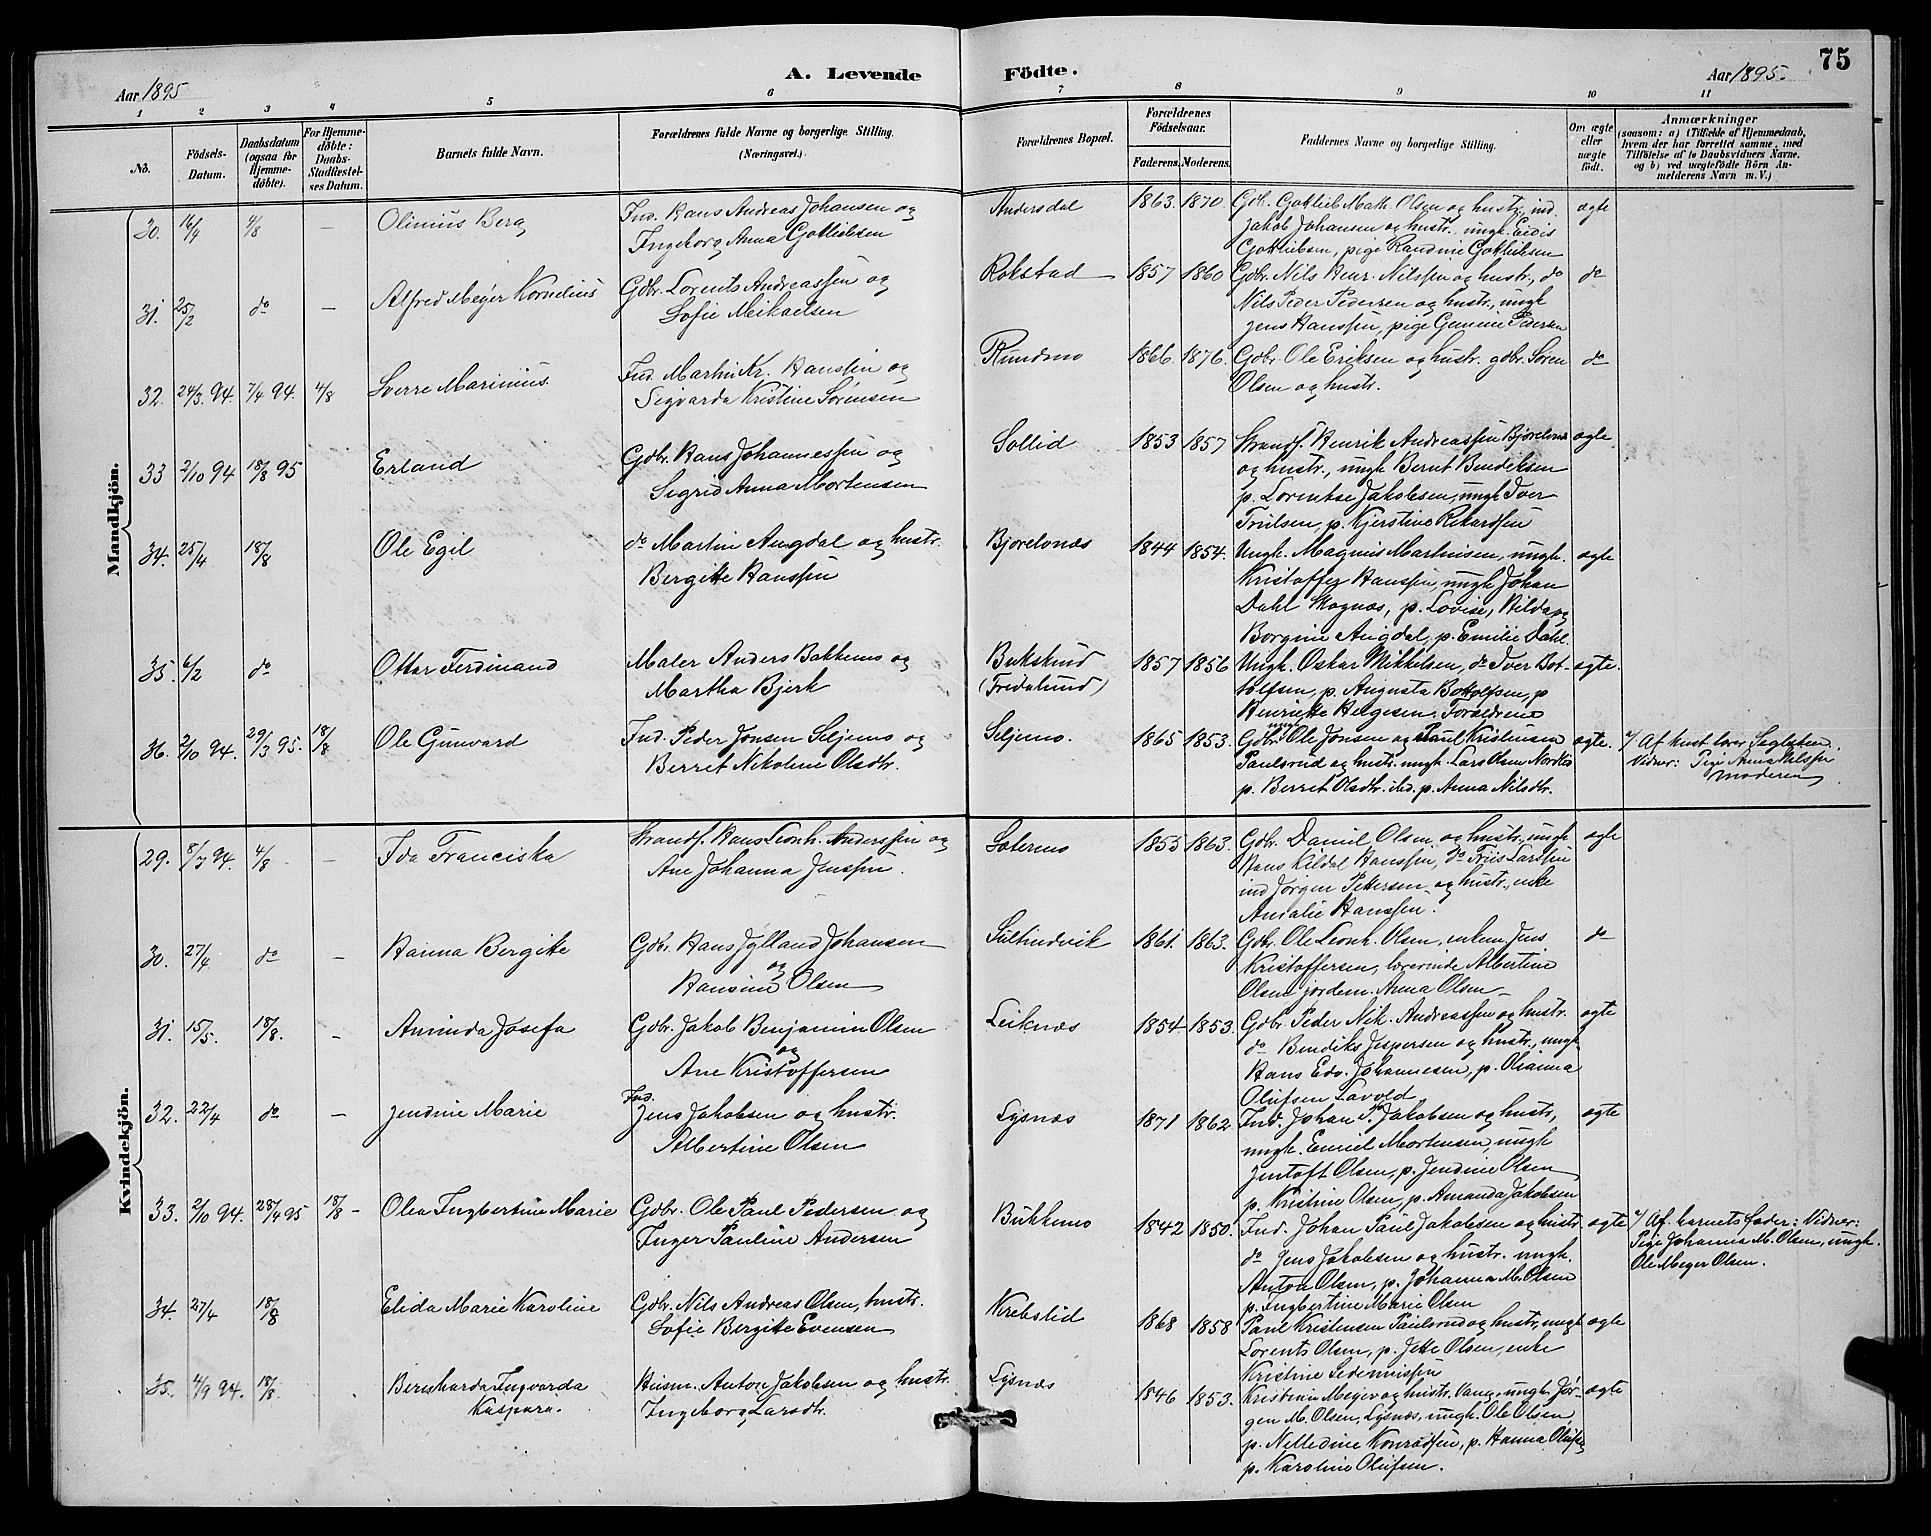 75
A. Levende Födte.
Aar 1895
Aar 1895.
1 2 3 4 5 6 7 8 9 10 11
No.
Födsels-Datum.
Daabsdatum (ogsaa for Hjemmedöbte).
For Hjemmedöbte: Daabs-Stadfæstelses Datum.
Barnets fulde Navn.
Forældrenes fulde Navne og borgerlige Stilling. (Næringsvei.)
Forældrenes Bopæl.
Forældrenes Födselsaar.
Faderens. Moderens.
Faddernes Navne og borgerlige Stilling.
Om ægte eller uægte födt.
Anmærkninger
(saasom: a) i Tilfælde af Hjemmedaab, hvem der har forrettet samme, med Tilföielse af to Daabsvidners Navne, og b) ved uægtefödte Börn Anmelderens Navn m. V.)
Mandkjön.
30. 16/4 4/8 — Olinius Berg
Ind. Hans Andreas Johansen og
Ingeborg Anna Gotliebsen
Andersdal 1863. 1870.
Gbr. Gotlieb Math. Olsen og hustr., ind.
Jakob Johansen og hustr., ungk. Eidis
Gotliebsen, pige Randine Gotliebsen
ægte
31. 25/2 do — Alfred Meyer Kornelius
Gdbr. Lorents Andreassen og
Sofie Meikaelsen
Rokstad 1857 1860
Gdbr. Nils Henr. Nilssen og hustr., do
Nils Peder Pedersen og hustr., ungk
Jens Hanssen, pige Gemine Pedersen
do
32. 24/3 94. 7/4 94. 4/8 Sverre Marinius.
Ind. Martin Kr. Hanssen og
Segvarda Kristine Sørensen
Rundmo 1866. 1876.
Gdbr. Ole Eriksen og hustr. gdbr. Søren
Olsen og hustr.
do
33 2/10 94 18/8 95 Erland
Gdbr. Hans Johannessen og
Sigrid Anna Mortensen
Sollid 1853 1857
Strandf. Henrik Andreassen Bjorelvnæs
og hustr., ungk Bernt Bendiksen
p. Lorentse Jakobsen, ungk Iver
Trulsen, p. Kjerstine Rikardsen
ægte
34. 25/4 18/8 Ole Egil
do Martin Augdal og hustr.
Bergitte Hanssen
Bjorelvnæs 1844 1854.
Ungk. Magnus Martinisen, ungk.
Kristoffer Hanssen, ungk Johan
Dahl Skognæs, p. Lovise, Hilda og
Borgine Augdal, p. Emilie Dahl
ægte
35. 6/2 do Ottar Ferdinand
Maler Anders Bakkemo og
Martha Bjerk
Bukskind
(Fredslund)
1857 1856
Ungk. Oskar Mikkelsen, do Iver Bot-
tolfsen, p. Augusta Bottolfsen, p
Henriette Helgesen. Forældrene
ægte.
36. 2/10 94. 29/3 95. 18/8 Ole Gunvard
Ind. Peder Jonsen Seljemo og
Berret Nikoline Olsdtr.
Seljemo. 1865 1853.
ungk
Gdbr. Ole Jonsen og Paul Kristensen
Paulsrud og hustr. ungk. Lars Olsen Nordli
p. Berret Olsdtr. ibd. p. Anna Nilsdtr.
ægte.
Vidner: Pige Anna Nilssen
Moderen
Kvindekjön.
29. 8/7 94. 4/8 — Ida Franciska
Strandf. Hans Leonh. Anderssen og
Ane Johanna Jenssen.
Sætermo 1855 1863.
Gdbr. Daniel Olsen og hustr., ungk.
Hans Kildal Hanssen, do Friis Larssen
ind Jørgen Pettersen og hustr., enke
Amalie Hanssen.
ægte
30. 27/4 do — Hanna Bergitte
Gdbr. Hans Jylland Johansen
og
Hansine Olsen
Sultindvik 1861. 1863.
Gdbr. Ole Leonh. Olsen, enkem Jens
Kristoffersen, lærerinde Albertine
Olsen jordem. Anna Olsen
do
31. 15/5. 18/8. — Aminda Josefa
Gdbr. Jakob Benjamin Olsen
og
Ane Kristoffersen
Leiknæs 1854 1853.
Gdbr. Peder Nik. Andreassen og hustr.
do Bendiks Jespersen og hustr., ungk.
Hans Edv. Johannesen, p. Olianna
Olufsen Løvold
ægte
32. 22/4 do — Jendine Marie
Ind.
Jens Jakobsen og hustr.
Albertine Olsen
Lysnæs 1871 1862
Ind. Johan P. Jakobsen og hustr.,
ungk. Emiel Mortensen, ungk
Jentoft Olsen, p. Jendine Olsen
p. Kristine Olsen, p. Amanda Jakobsen
ægte
33. 2/10 94. 28/4 95 18/8 — Olea Ingbertine Marie
Gdbr. Ole Paul Pedersen og
Inger Pauline Andersen
Bukkemo 1842 1850.
Ind. Johan Paul Jakobsen og hustr
do Jens Jakobsen og hustr. ungk.
Anton Olsen, p. Johanna M. Olsen
p. Ingbertine Marie Olsen
ægte
Af barnets fader: Vidner:
Pige Johanna M. Olsen, ungk.
Ole Meyer Olsen.
34. 27/4 18/8 Elida Marie Karoline
Gdbr. Nils Andreas Olsen, hustr.
Sofie Bergitte Evensen
Krabslid 1868 1858
Paul Kristensen Paulsrud og hustr., ungk
Lorents Olsen, p. Jette Olsen, enke
Kristine
ægte
35. 4/9 94. 18/8. Bernharda Ingvarda
Kaspara.
Husm. Anton Jakobsen og hustr.
Ingeborg Larsdtr.
Lysnæs 1846 1853.
Kristian Meyer og hustr. Vang, ungk Jør-
gen M. Olsen, Lysnæs, ungk. Ole Olsen,
p. Nelledine Konradsen, p. Hanna Olufsen
p. Karoline Olufsen.
ægte